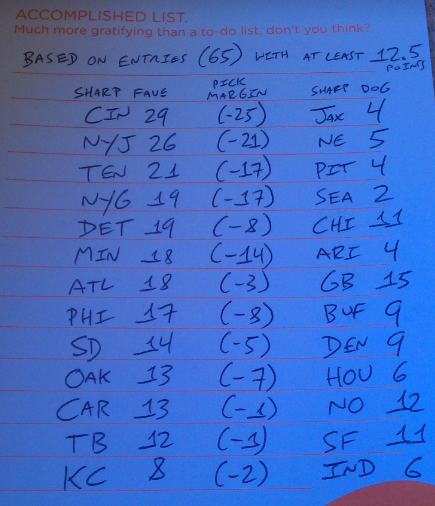 ACCOMPLISHED LIST.
Much more gratifying than a to-do list, don't you think?
BASED ON ENTRIES (65) WITH AT LEAST 12.5 POINTS
SHARP FAVE PICK MARGIN SHARP DOG
CIN 29 (-25) JAX 4
NYJ 26 (-21) NE 5
TEN 21 (-17) PIT 4
NYG 19 (-17) SEA 2
DET 19 (-8) CHI 11
MIN 18 (-14) ARI 4
ATL 18 (-3) GB 15
PHI 17 (-8) BUF 9
SD 14 (-5) DEN 9
OAK 13 (-7) HOU 6
CAR 13 (-1) NO 12
TB 12 (-1) SF 11
KC 8 (-2) IND 6